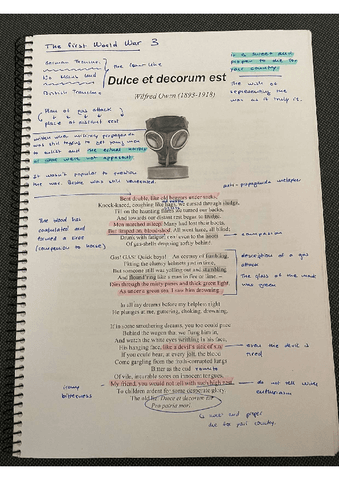 The First World War 3
German Trenches
No Man's Land
British Trenches
the front line
it is sweet and
proper to die for
your country.
Dulce et decorum est
Wilfred Owen (1893-1918)
The wish of
representing the
war as it truly is.
place of
anti-propaganda
Bent double, like old beggars under sacks,
Knock-kneed, coughing like hags, we cursed through sludge,
Till on the haunting flares we turned our backs
And towards our distant rest began to trudge.
Men marched asleep. Many had lost their boots
But limped on, blood-shod. All went lame; all blind;
Drunk with fatigue; deaf even to the hoots
Of gas-shells dropping softly behind.
The blood has
coagulated and
formed a
(comparison to horse)
comparison
Gas! GAS! Quick, boys! An ecstasy of fumbling,
Fitting the clumsy helmets just in time,
But someone still was yelling out and stumbling
And flound'ring like a man in fire or lime
Dim through the misty panes and thick green light,
As under a green sea, I saw him drowning.
description of a gas
attack
The glass of the mask
was green
In all my dreams before my helpless sight
He plunges at me, guttering, choking, drowning.
If in some smothering dreams, you too could pace
Behind the wagon that we flung him in,
And watch the white eyes writhing in his face,
His hanging face, like a devil's sick of sin,
If you could hear, at every jolt, the blood
Come gargling from the froth-corrupted lungs
Bitter as the cud
Of vile, incurable sores on innocent tongues,
My friend, you would not tell with such high zest
To children ardent for some desperate glory,
The old lie: Dulce et decorum est
Pro patria mori.
even the devil is
tired
irony
bitterness
do not tell with
enthusiasm
sweet and proper
die for your country.